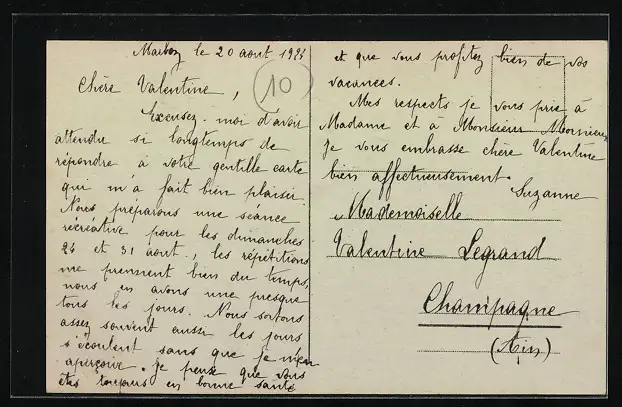 le 20 août 192
10
Chère Valentine,
Excusez-moi d'avoir
attendu si longtemps de
répondre à votre gentille carte
qui m'a fait bien plaisir.
Nous préparons une séance
récréative pour les dimanches
24 et 31 août, les répétitions
me prennent bien du temps,
nous en avons une presque
tous les jours. Nous sortons
assez souvent aussi les jours
s'écoulent sans que je m'en
aperçoive. Je pense que vous
êtes toujours en bonne santé
et que vous profitez bien de vos
vacances.
Mes respects je vous prie à
Madame et à Monsieur
Je vous embrasse chère Valentine
bien affectueusement.
Suzanne
Mademoiselle
Valentine Legrand
Champagne
(Ain)